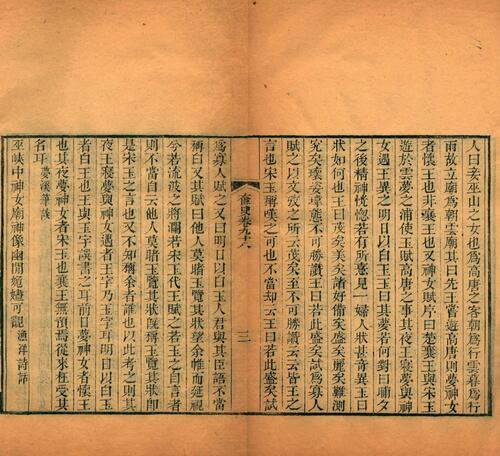 人曰妾巫山之女也爲高唐之客朝爲行雲暮爲行
雨故立廟爲朝雲廟其曰先王嘗遊高唐則夢神女
者懷王也非襄王也又神女賦序曰楚襄王與宋玉
遊於雲夢之浦使玉賦高唐之事其夜王寢夢與神
女遇王異之明日以白玉玉曰其夢若何對曰晡夕
之後精神恍惚若有所憙見一婦人狀甚奇異玉曰
狀如何也王曰茂矣美矣諸好備矣盛矣麗矣難測
究矣瓌姿瑋態不可勝讚王曰若此盛矣試爲寡人
賦之以文攷之所云茂矣至不可勝讚云云皆王之
言也宋玉稱嘆之可也不當却云王曰若此盛矣試
奩史卷九十八
二
爲寡人賦之又曰明日以白玉人君與其臣語不當
稱白又其賦曰他人莫睹玉覽其狀望余帷而延視
兮若流波之將瀾若宋玉代王賦之若玉之自言者
則不當自云他人莫睹玉覽其狀旣稱玉覽其狀即
是宋玉之言也又不知稱余者誰也以此考之則其
夜王寢夢與神女遇者王字乃玉字耳明日以白玉
者白王也王與玉字誤書之耳前日夢神女者懷王
也其夜夢神女者宋玉也襄王無預焉從來枉受其
名耳 夢溪筆談
巫峽中神女廟神像幽閒姽嫿可觀 漁洋詩話